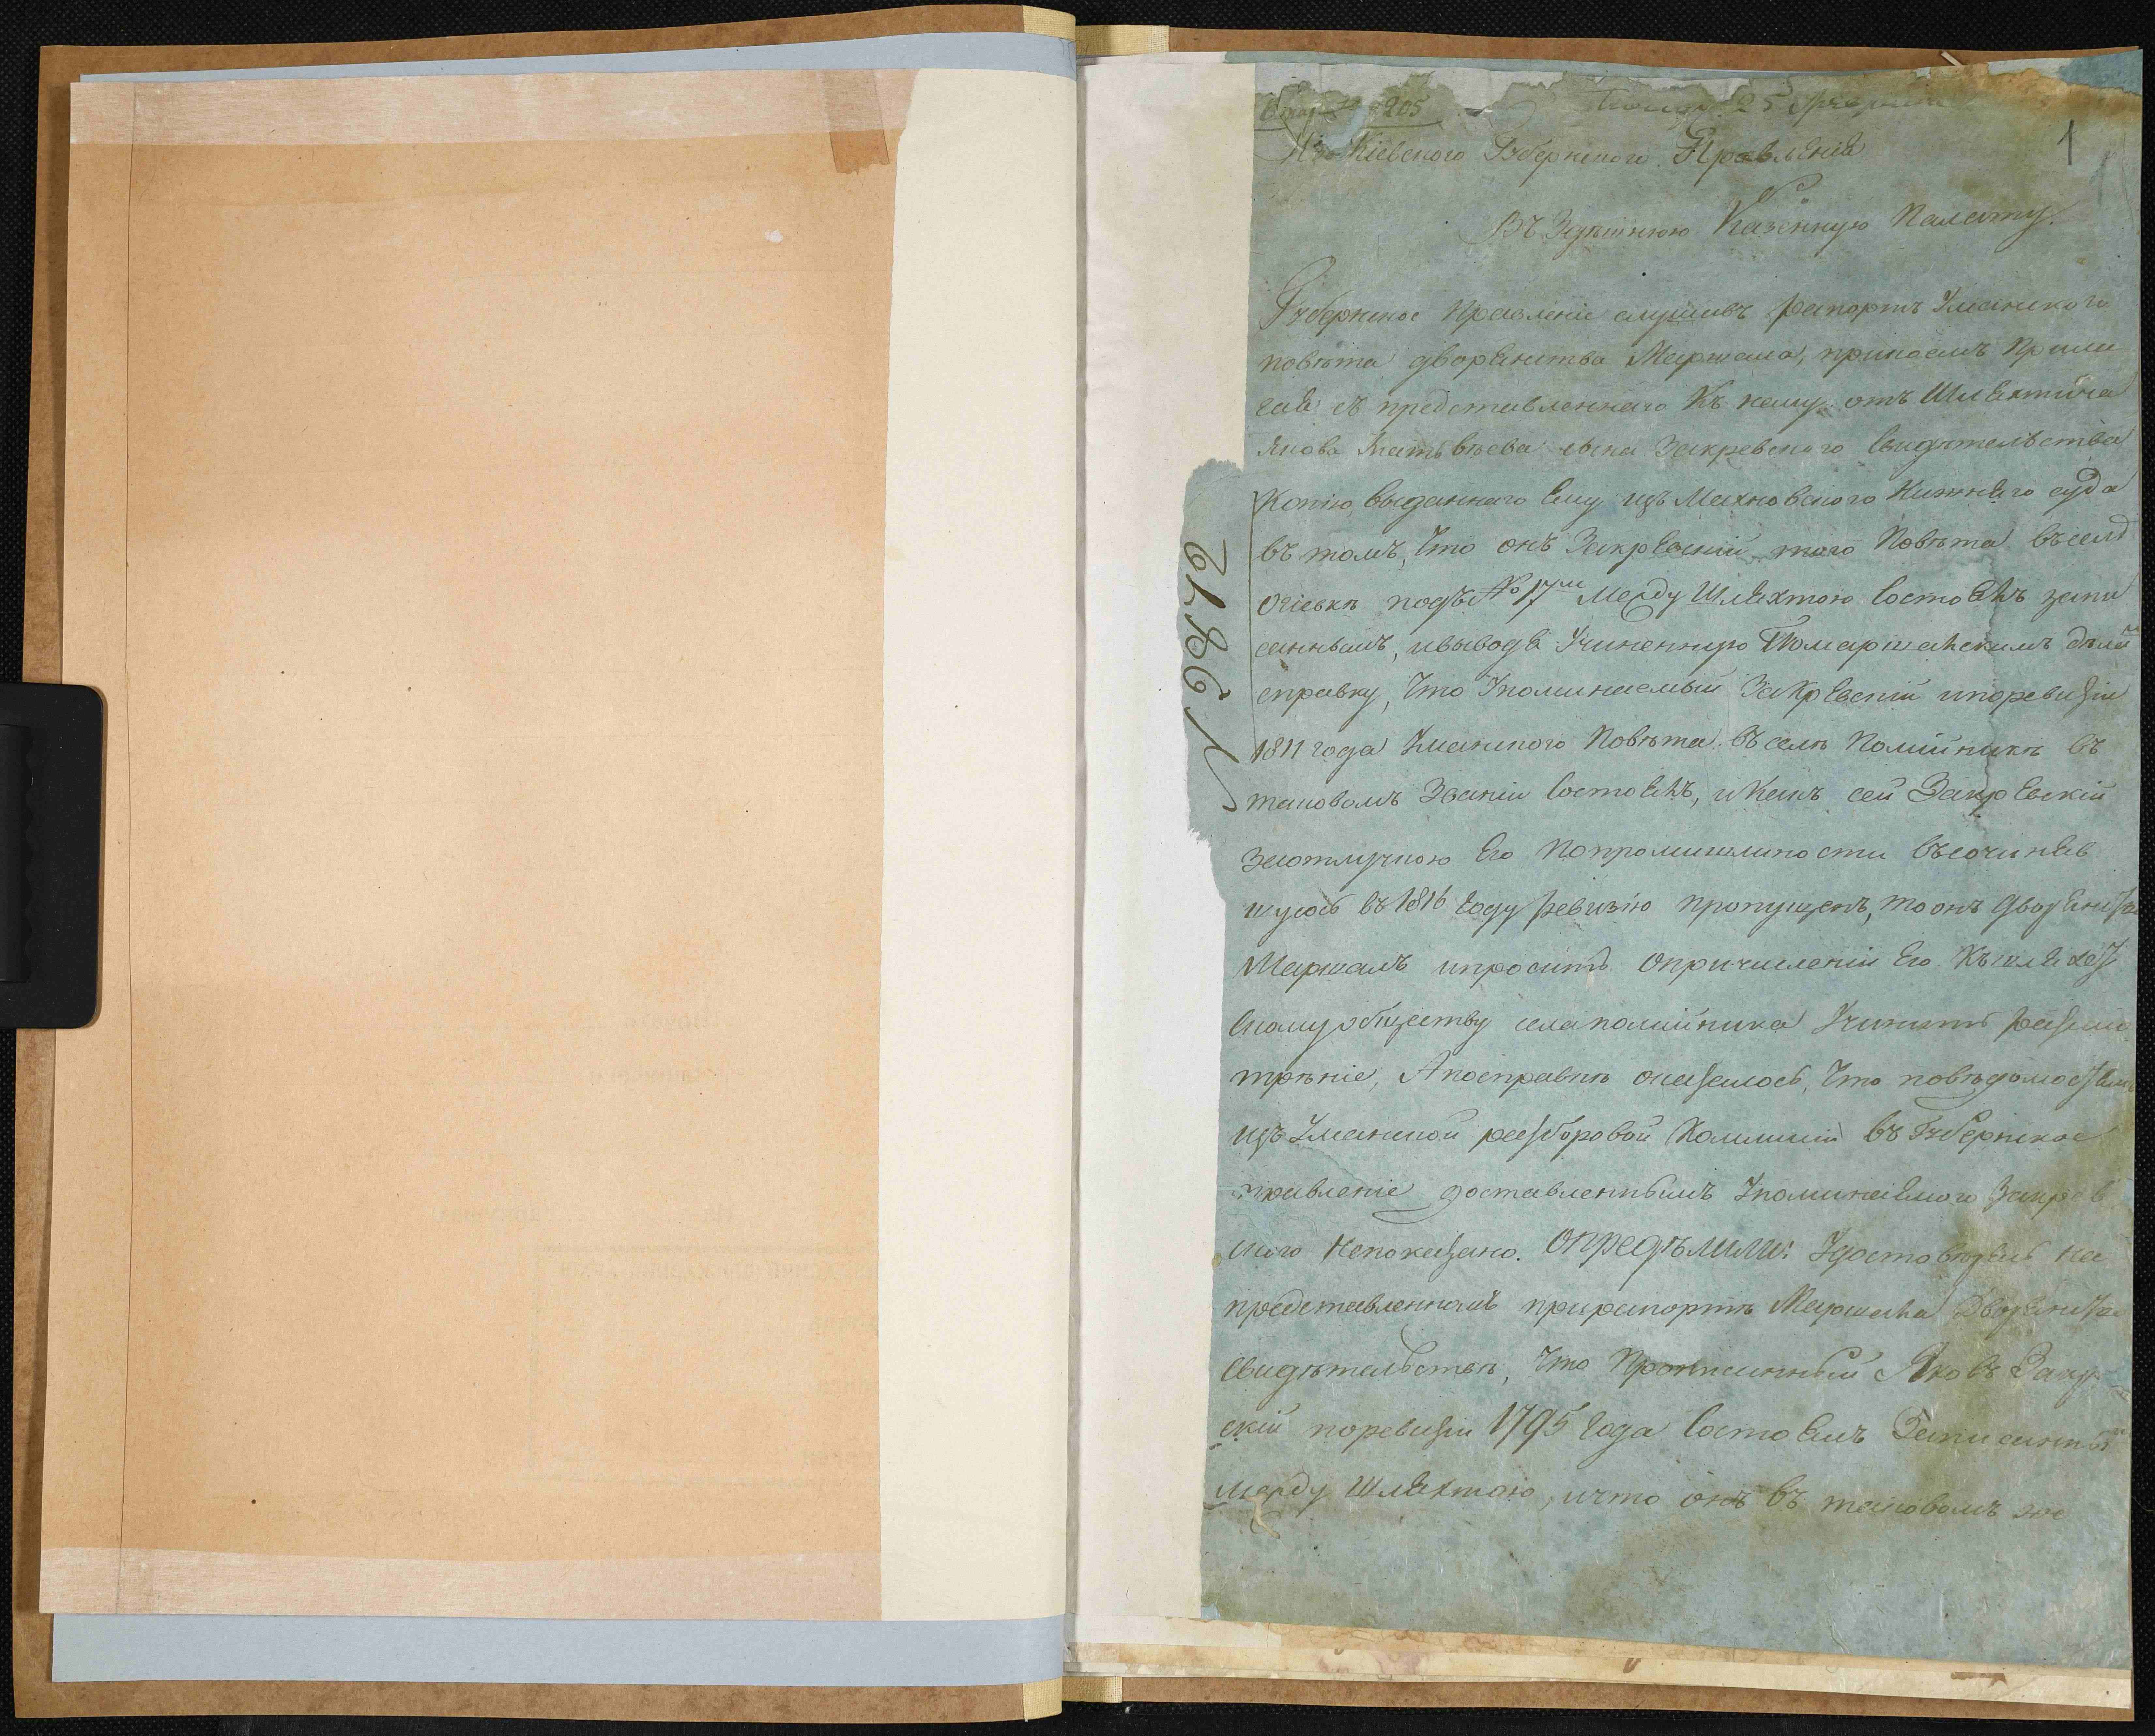 205
25
1
Изъ Кіевского Губернского Правленія
Въ Здѣшнюю Казенную Палату.
Губернское Правленіе слушавъ рапортъ Уманского
повѣта дворянства Маршала, при коемъ прила
гая съ представленнаго къ нему отъ Шляхтича
Якова Матьвѣева сына Закревского Свидѣтельства
Копію, выданнаго Ему изъ Махновского Нижняго суда
въ томъ, Что онъ Закревскій того Повѣта въ селѣ
подъ № 17м между Шляхтою Состоялъ запи
саннымъ, и выводя Учиненную По маршальскимъ дѣламъ
справку, Что Упоминаемый Закревскій и по ревизіи
1811 года Уманского Повѣта въ селѣ Полійникѣ въ
таковомъ Званіи Состоялъ, и Какъ сей Закревскій
за отлучкою Его По промышлиности въ сочиняв
шуюсь въ 1816 Году ревизію пропущенъ, то онъ дворянства
Маршалъ и проситъ о причисленіи Его Къ шляхет
скому обществу села полійника Учинить разсмо
трѣніе, А по справкѣ оказалось, Что по вѣдомостямъ
изъ Уманской разборовой Коммисіи въ Губернское
правленіе доставленнымъ Упоминаемого Закрев
ского Не показано. Опредѣлили: Удостовѣрясь на
представленномъ при рапортѣ Маршала Дворянства
Свидѣтельствѣ, Что Прописанный Яковъ Закрев
скій по ревизіи 1795 Года Состоялъ Записанны
между Шляхтою, и что онъ въ таковомъ же